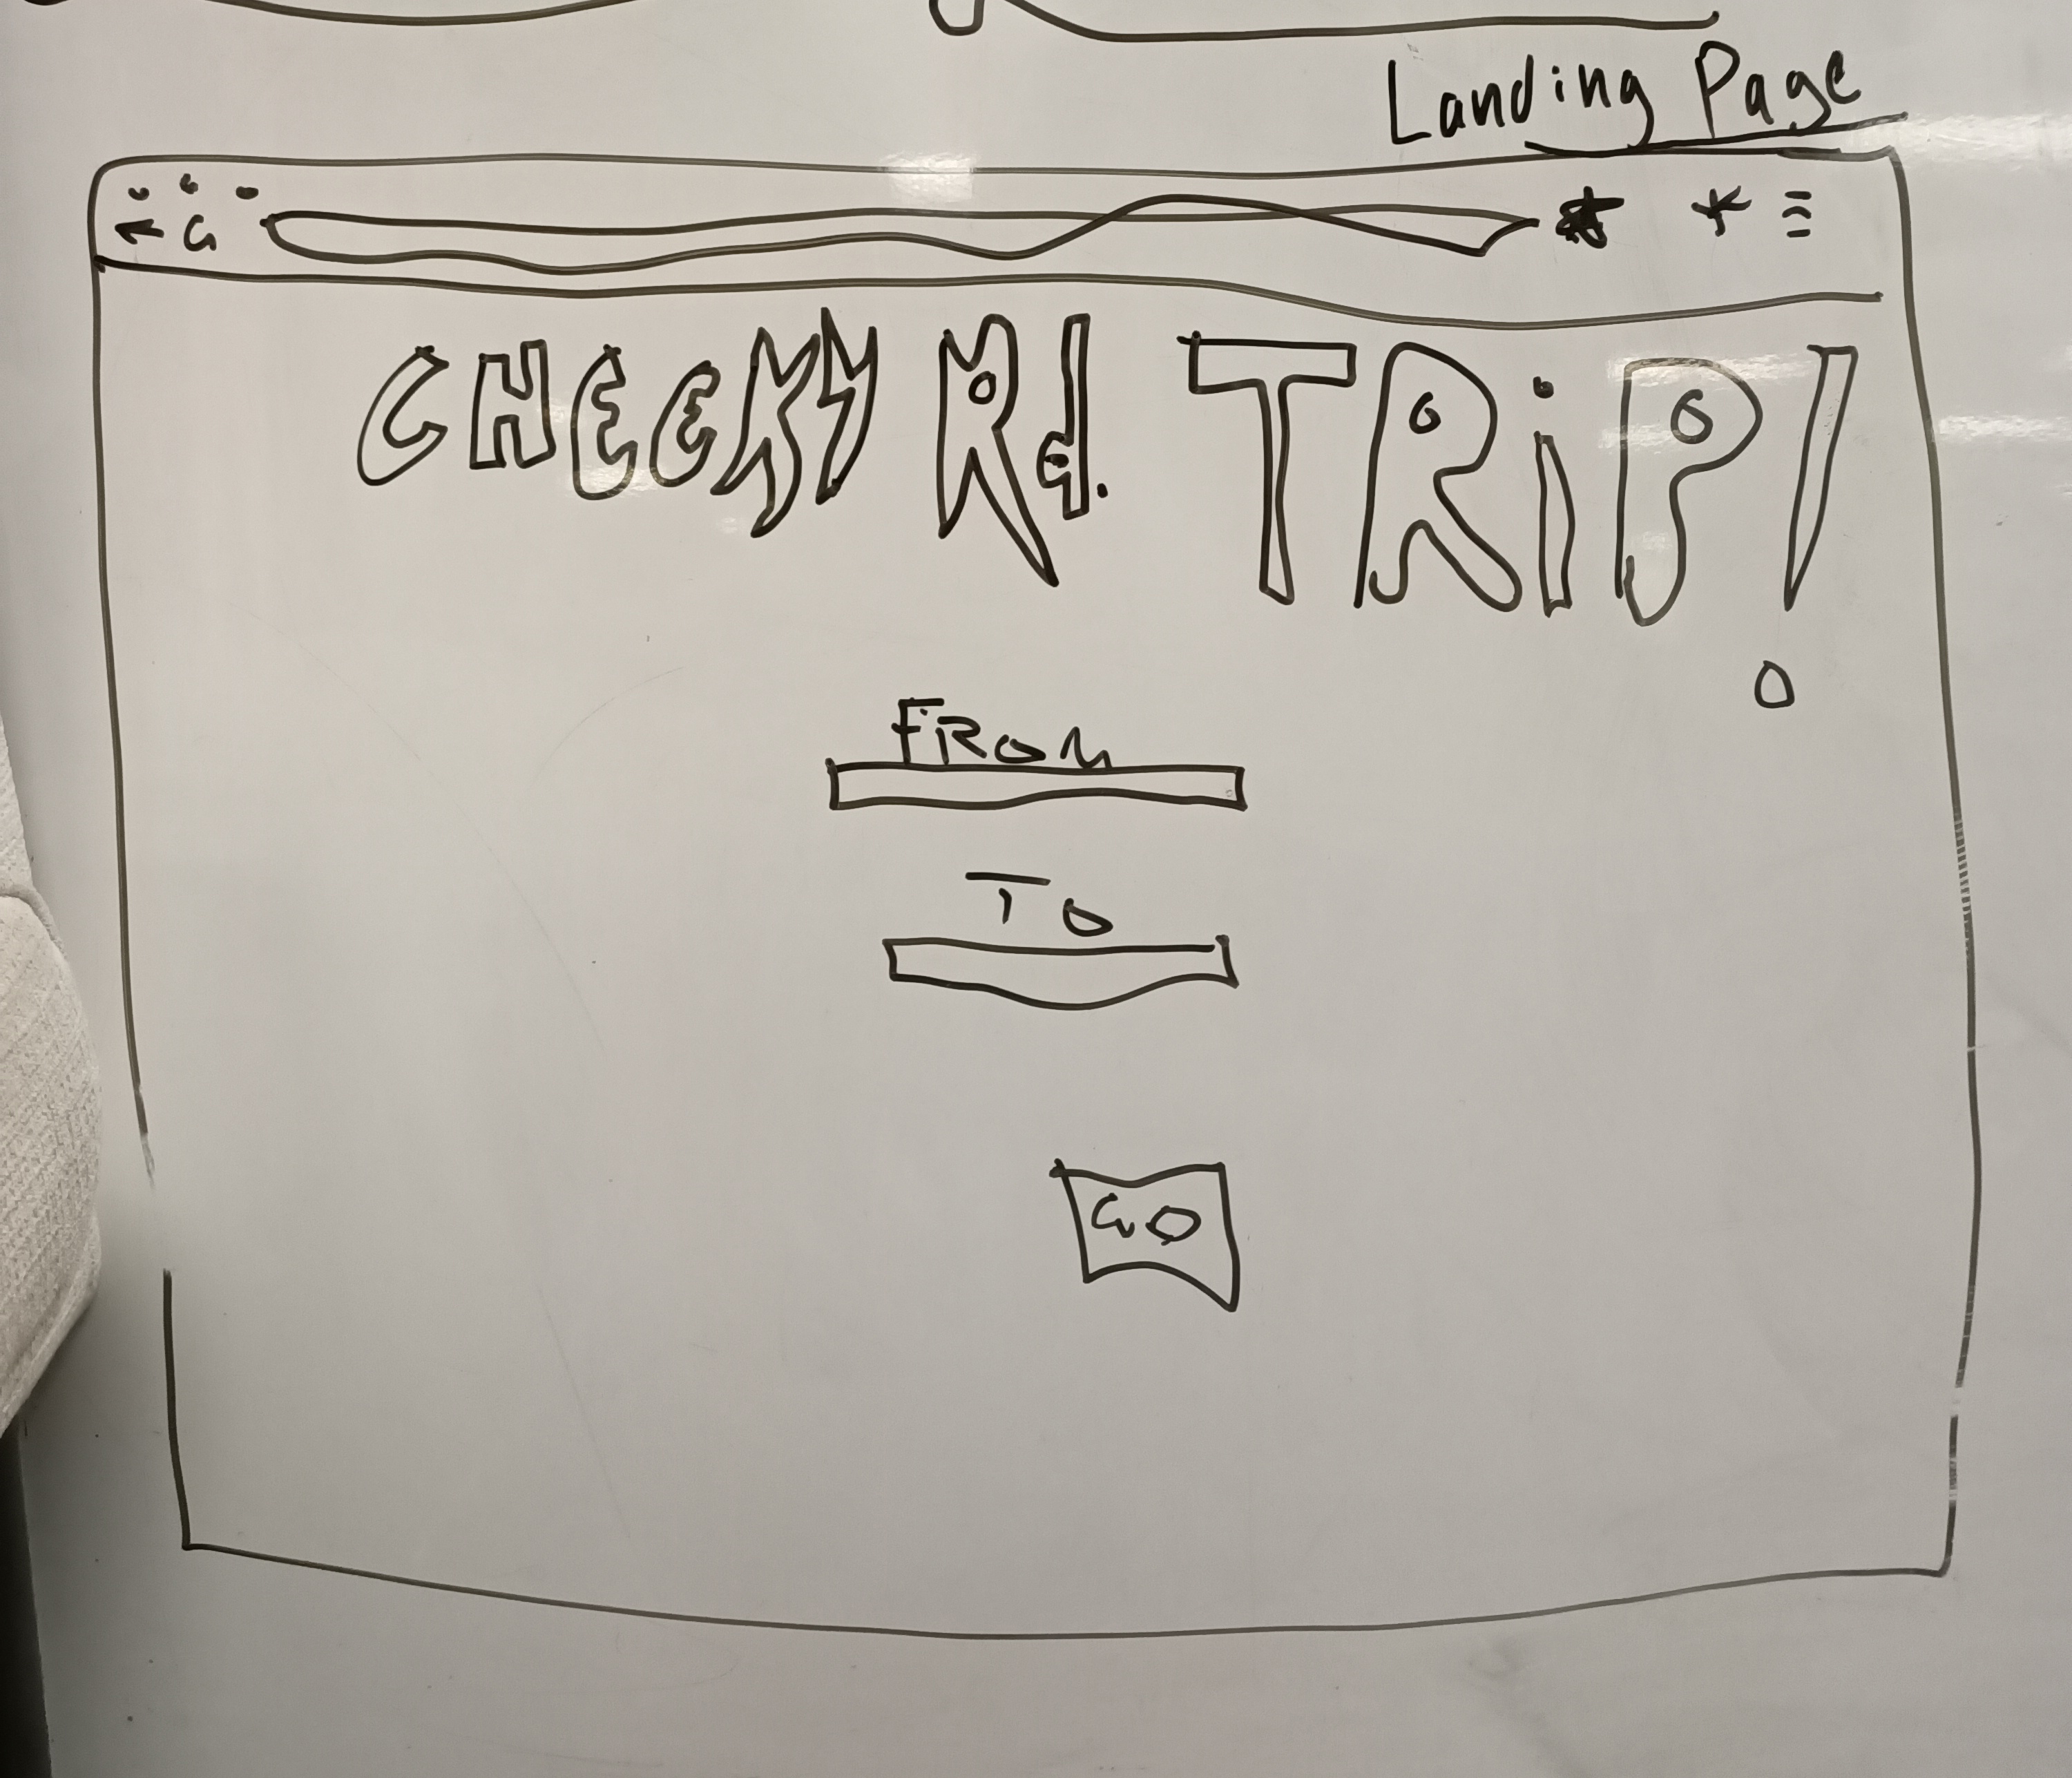 Landing Page
CHEEKY Rd. TRiP!
FROM
TO
GO